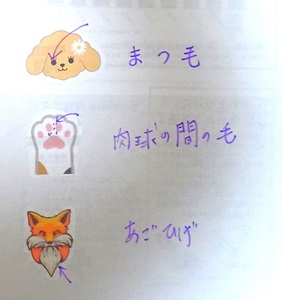 まつ毛
肉球の間の毛
あごひげ